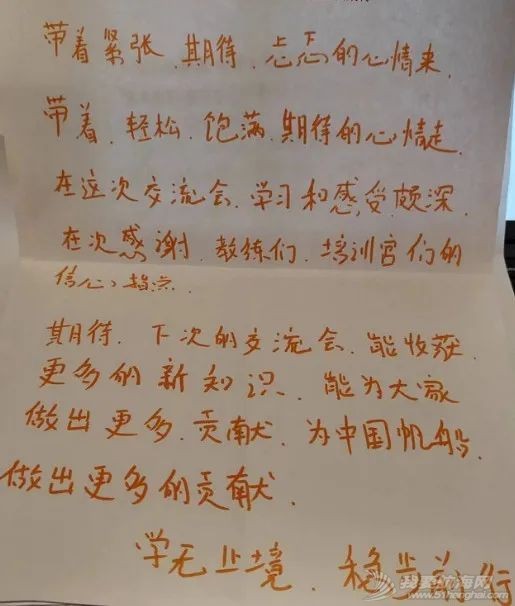 带着紧张、期待、忐忑的心情来、
带着、轻松、饱满、期待的心情走、
在这次交流会、学习和感受颇深、
在次感谢、教练们、培训官们的
信心、指点、
期待、下次的交流会、能收获、
更多的新知识、能为大家
做出更多、贡献、为中国帆船、
做出更多的贡献、
学无止境、稳步前行
我要航海网
www.51hanghai.com